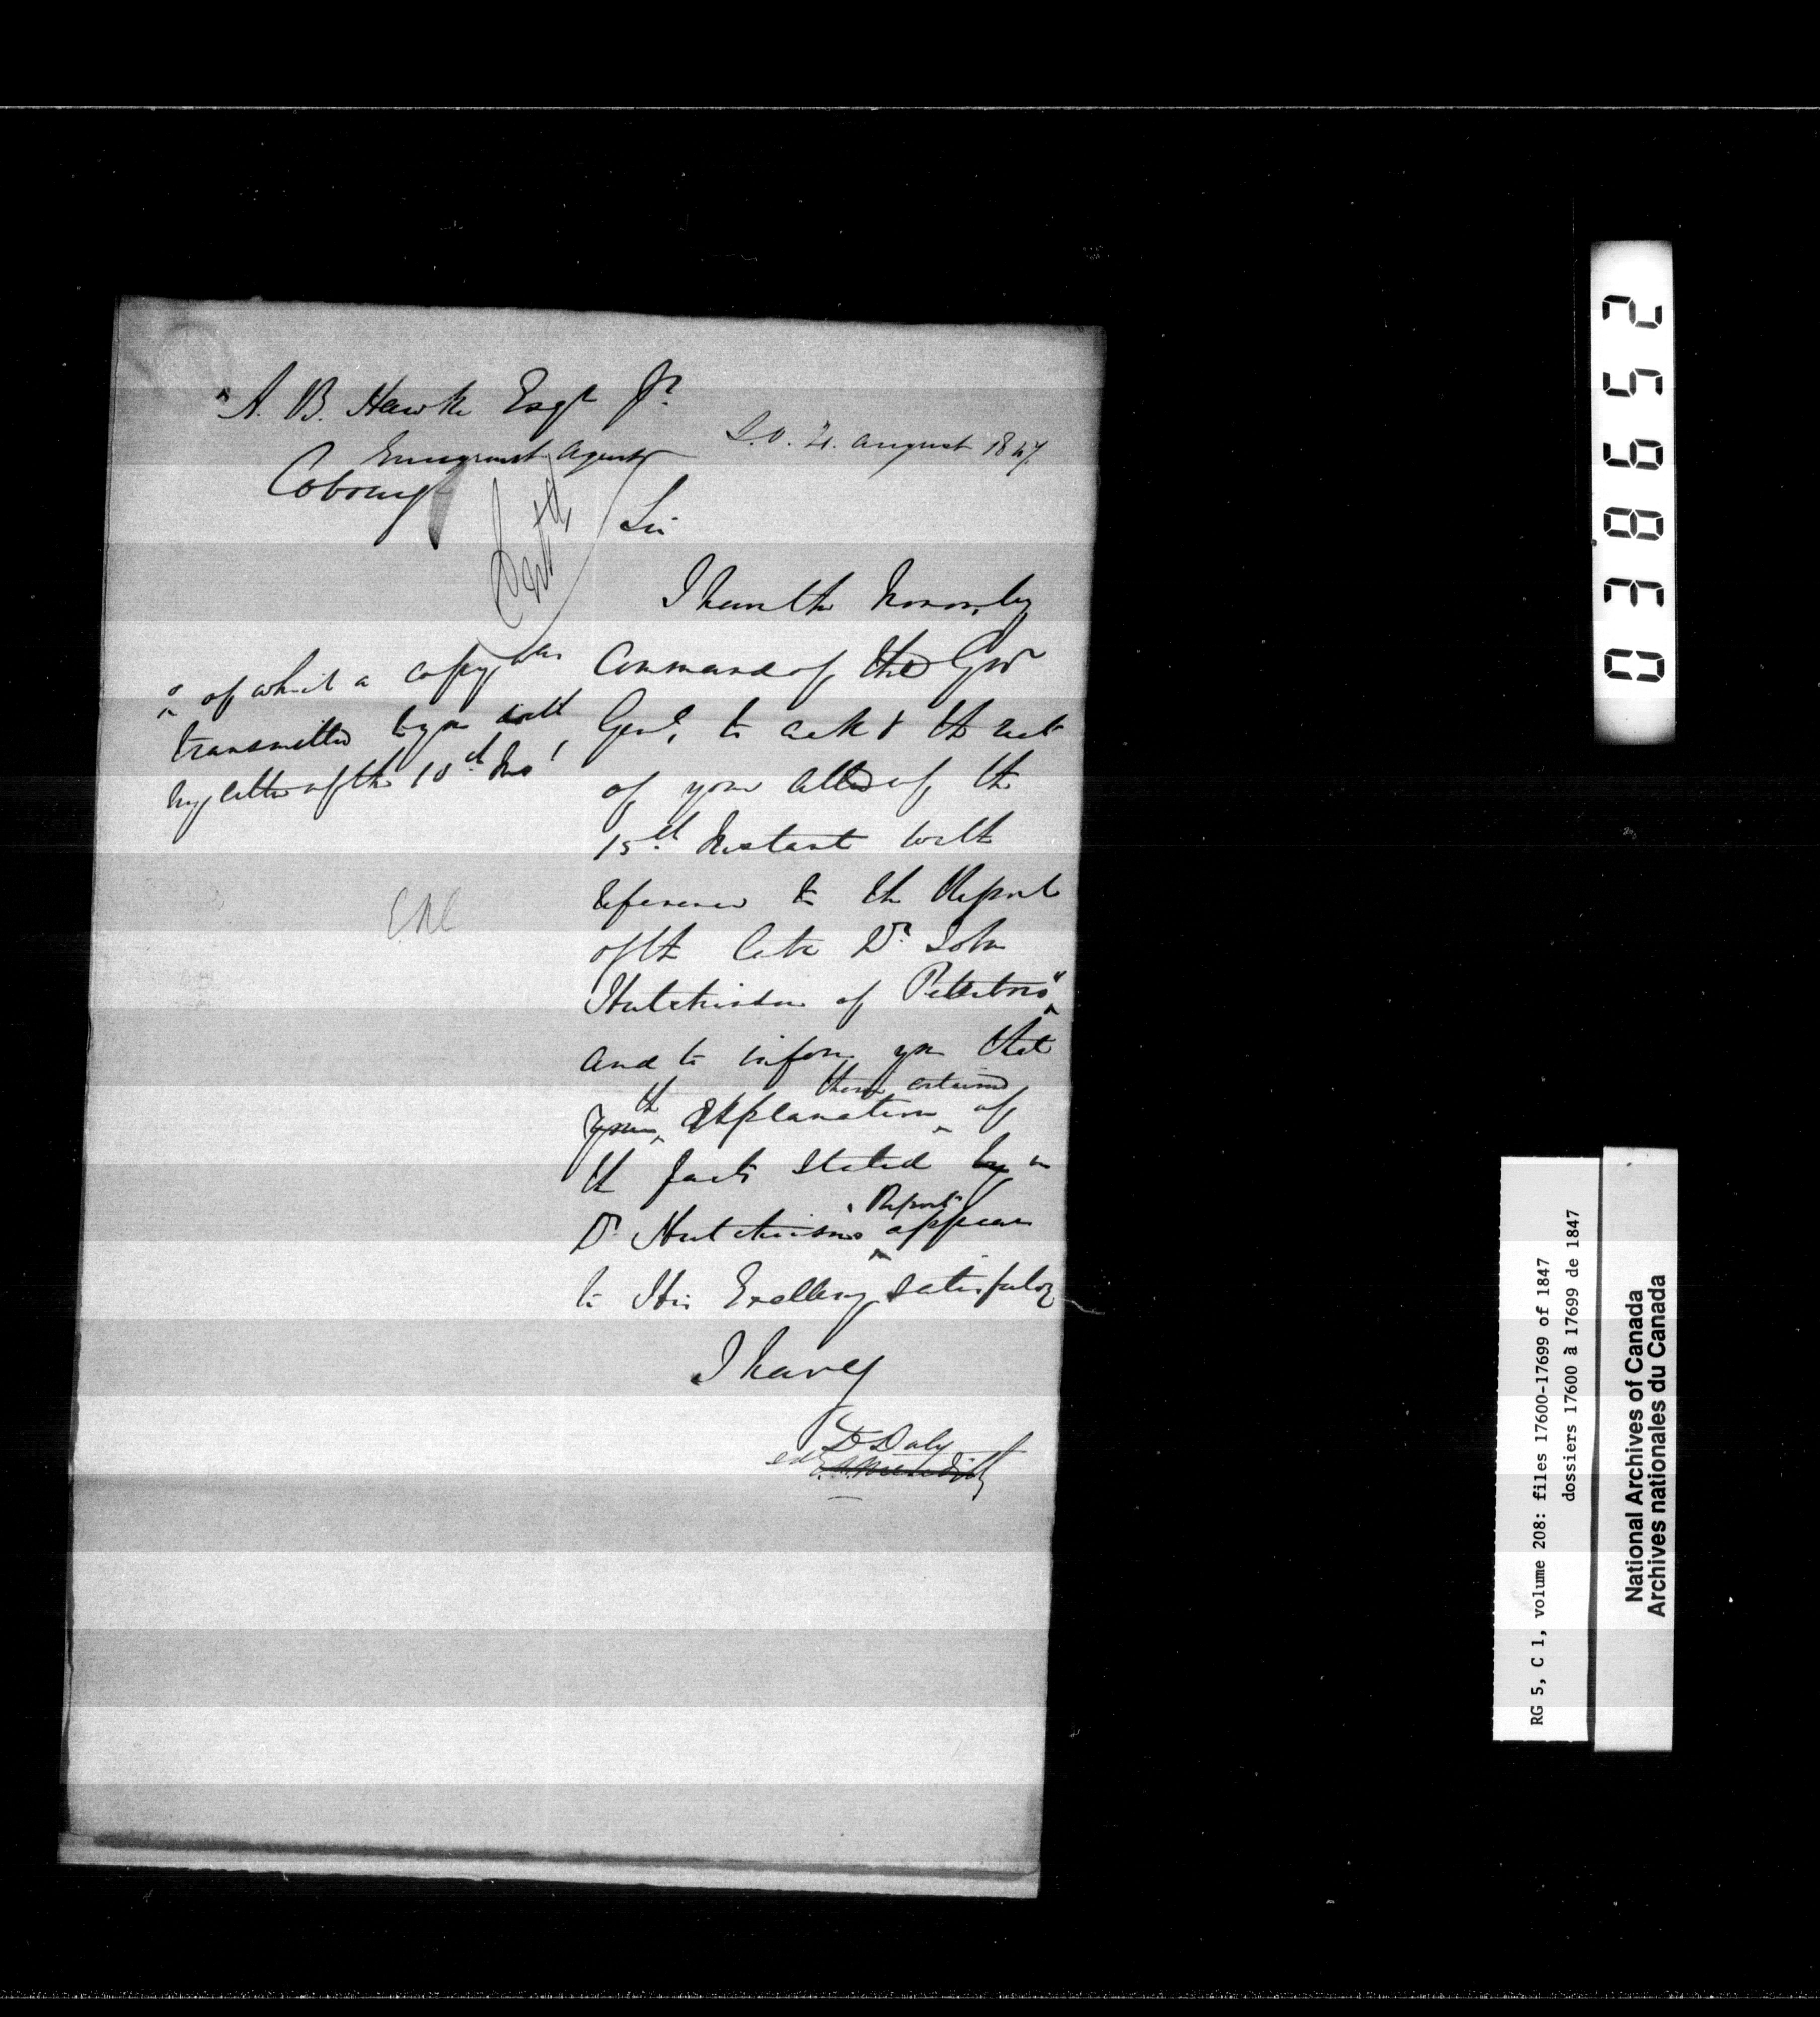 A. B. Hawke Esqr Jr.
Emigrant Agent
Cobourg
S.O. 21. August 1847.
Sir
I have the honor, by
Command of the Govr
Genl, to ack & the rect
of your letter of the
15th Instant with
reference to the Report
of the late Dr. John
Hutchison of Peterboro"
" of which a copy was
transmitted to you with
my letter of the 10th Inst
and to inform you that
your the explanation therein contained of
the facts stated by in
Dr Hutchison's Report appear
to His Excellency satisfactory
I have &
D Daly
E. A. Meredith
0 3 8 6 5 2
RG 5, C 1, volume 208: files 17600-17699 of 1847
dossiers 17600 à 17699 de 1847
National Archives of Canada
Archives nationales du Canada